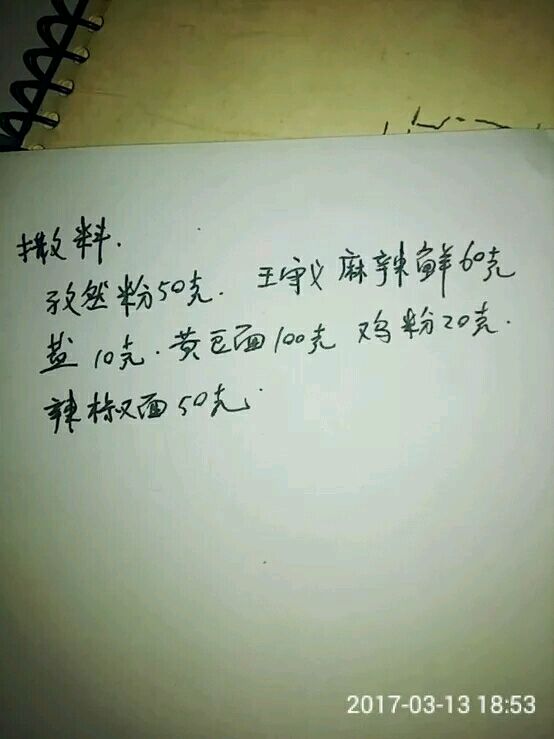 撒料.
孜然粉50克. 王守义麻辣鲜60克
盐10克.黄豆面100克 鸡粉20克.
辣椒面50克.
2017-03-13 18:53